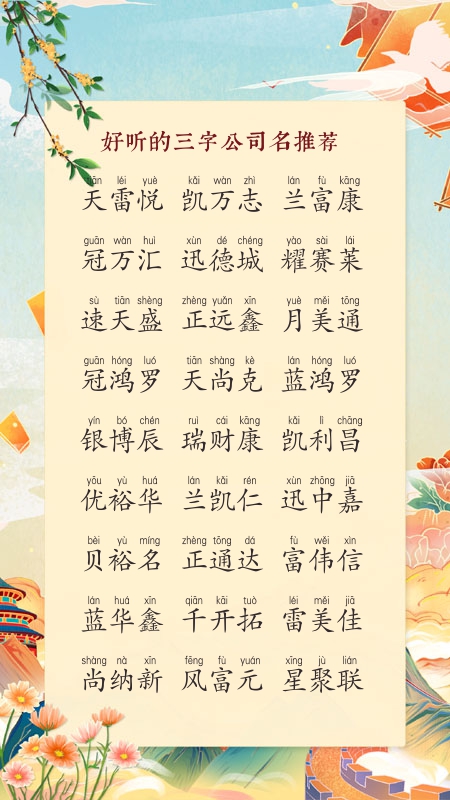 好听的三字公司名推荐
tiān léi yuè kǎi wàn zhì lán fù kāng
天雷悦 凯万志 兰富康
guān wàn huì xùn dé chéng yào sài lái
冠万汇 迅德城 耀赛莱
sù tiān shèng zhèng yuǎn xīn yuè měi tōng
速天盛 正远鑫 月美通
guān hóng luó tiān shàng kè lán hóng luó
冠鸿罗 天尚克 蓝鸿罗
yín bó chén ruì cái kāng kǎi lì chāng
银博辰 瑞财康 凯利昌
yōu yù huá lán kǎi rén xùn zhōng jiā
优裕华 兰凯仁 迅中嘉
bèi yù míng zhèng tōng dá fù wěi xìn
贝裕名 正通达 富伟信
lán huá xīn qiān kāi tuò léi měi jiā
蓝华鑫 千开拓 雷美佳
shàng nà xīn fēng fù yuán xīng jù lián
尚纳新 风富元 星聚联